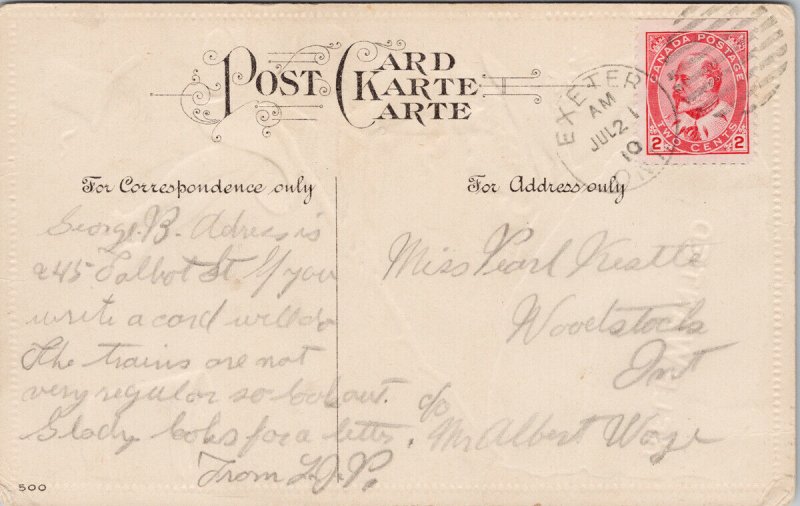 POST CARD
KARTE
CARTE
CANADA POSTAGE
2 TWO CENTS 2
EXETER
AM
JUL 21
10
ONT
For Correspondence only
For Address only
George. B. Adress is
245 Talbot St If you
write a card will do
The trains are not
very regular so look out.
Glady looks for a letter.
From L.J.P.
Miss Pearl
Woodstock
Ont
c/o
Mr Albert
500